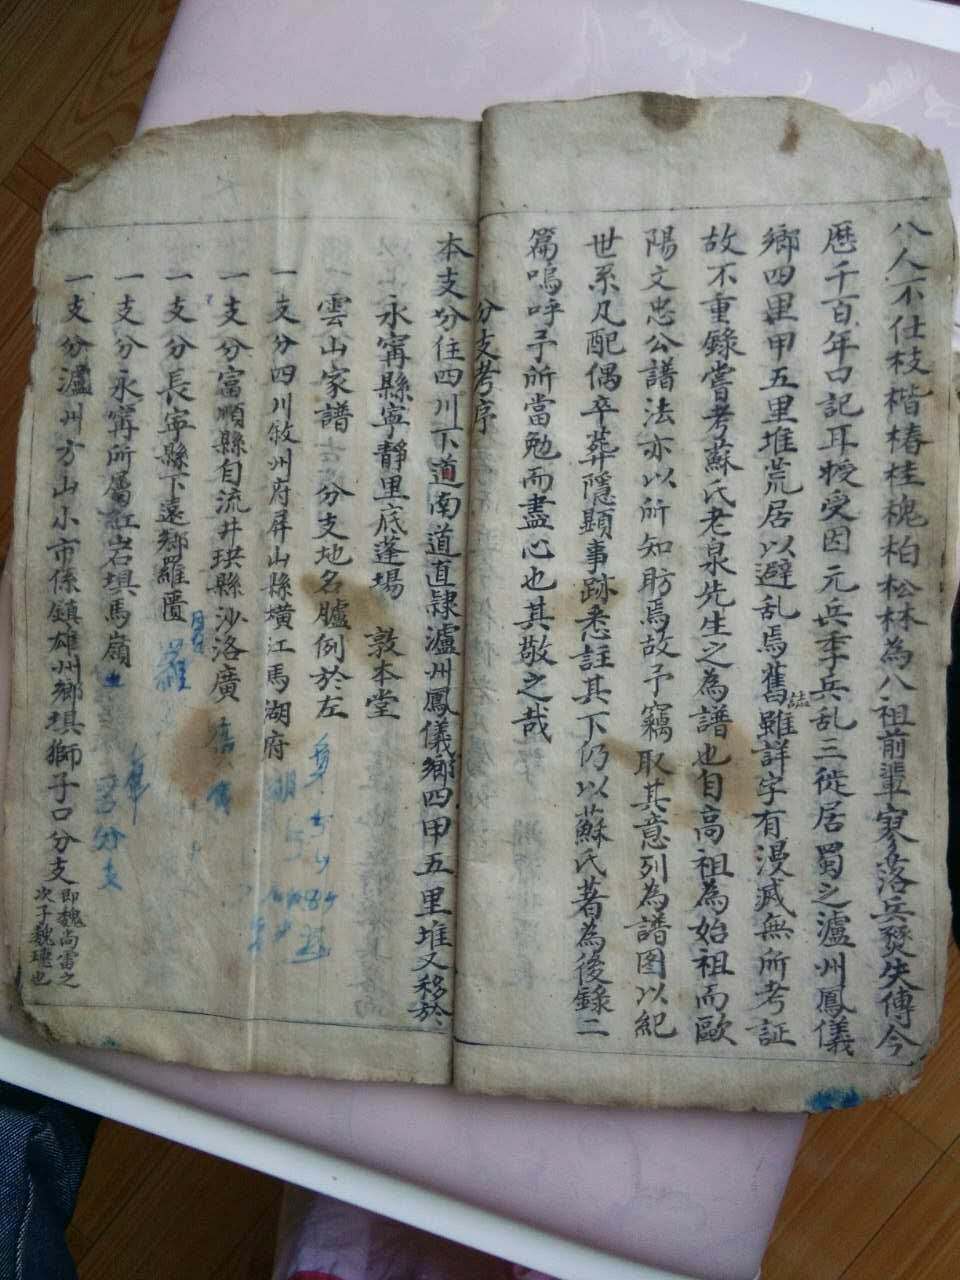 八人不仕枝楷椿桂槐柏松林為八祖前輩寥落兵燹失傳今
歷千百年口記耳授受因元兵季兵乱三徙居蜀之瀘州鳳儀
鄉四里甲五里堆荒居以避乱焉舊譜雖詳字有漫滅無所考証
故不重錄嘗考蘇氏老泉先生之為譜也自高祖為始祖而歐
陽文忠公譜法亦以所知肪焉故予竊取其意列為譜图以紀
世系及配偶卒葬隱顯事跡悉註其下仍以蘇氏著為後錄二
篇嗚呼予所當勉而盡心也其敬之哉
分支考序
本支分住四川下道南道直隸瀘州鳳儀鄉四甲五里堆又移於
永寗縣寜靜里底蓬場 敦本堂
雲山家譜 分支地名臚例於左
一支分四川敘州府屏山縣横江馬湖府
一支分富順縣自流井珙縣沙洛廣
一支分長寜縣下遠鄉羅匮
一支分永寗所屬紅岩垻馬嶺
一支分瀘州方山小市係鎮雄州鄉垻獅子口分支即魏尚雷之次子魏瑰也
分支